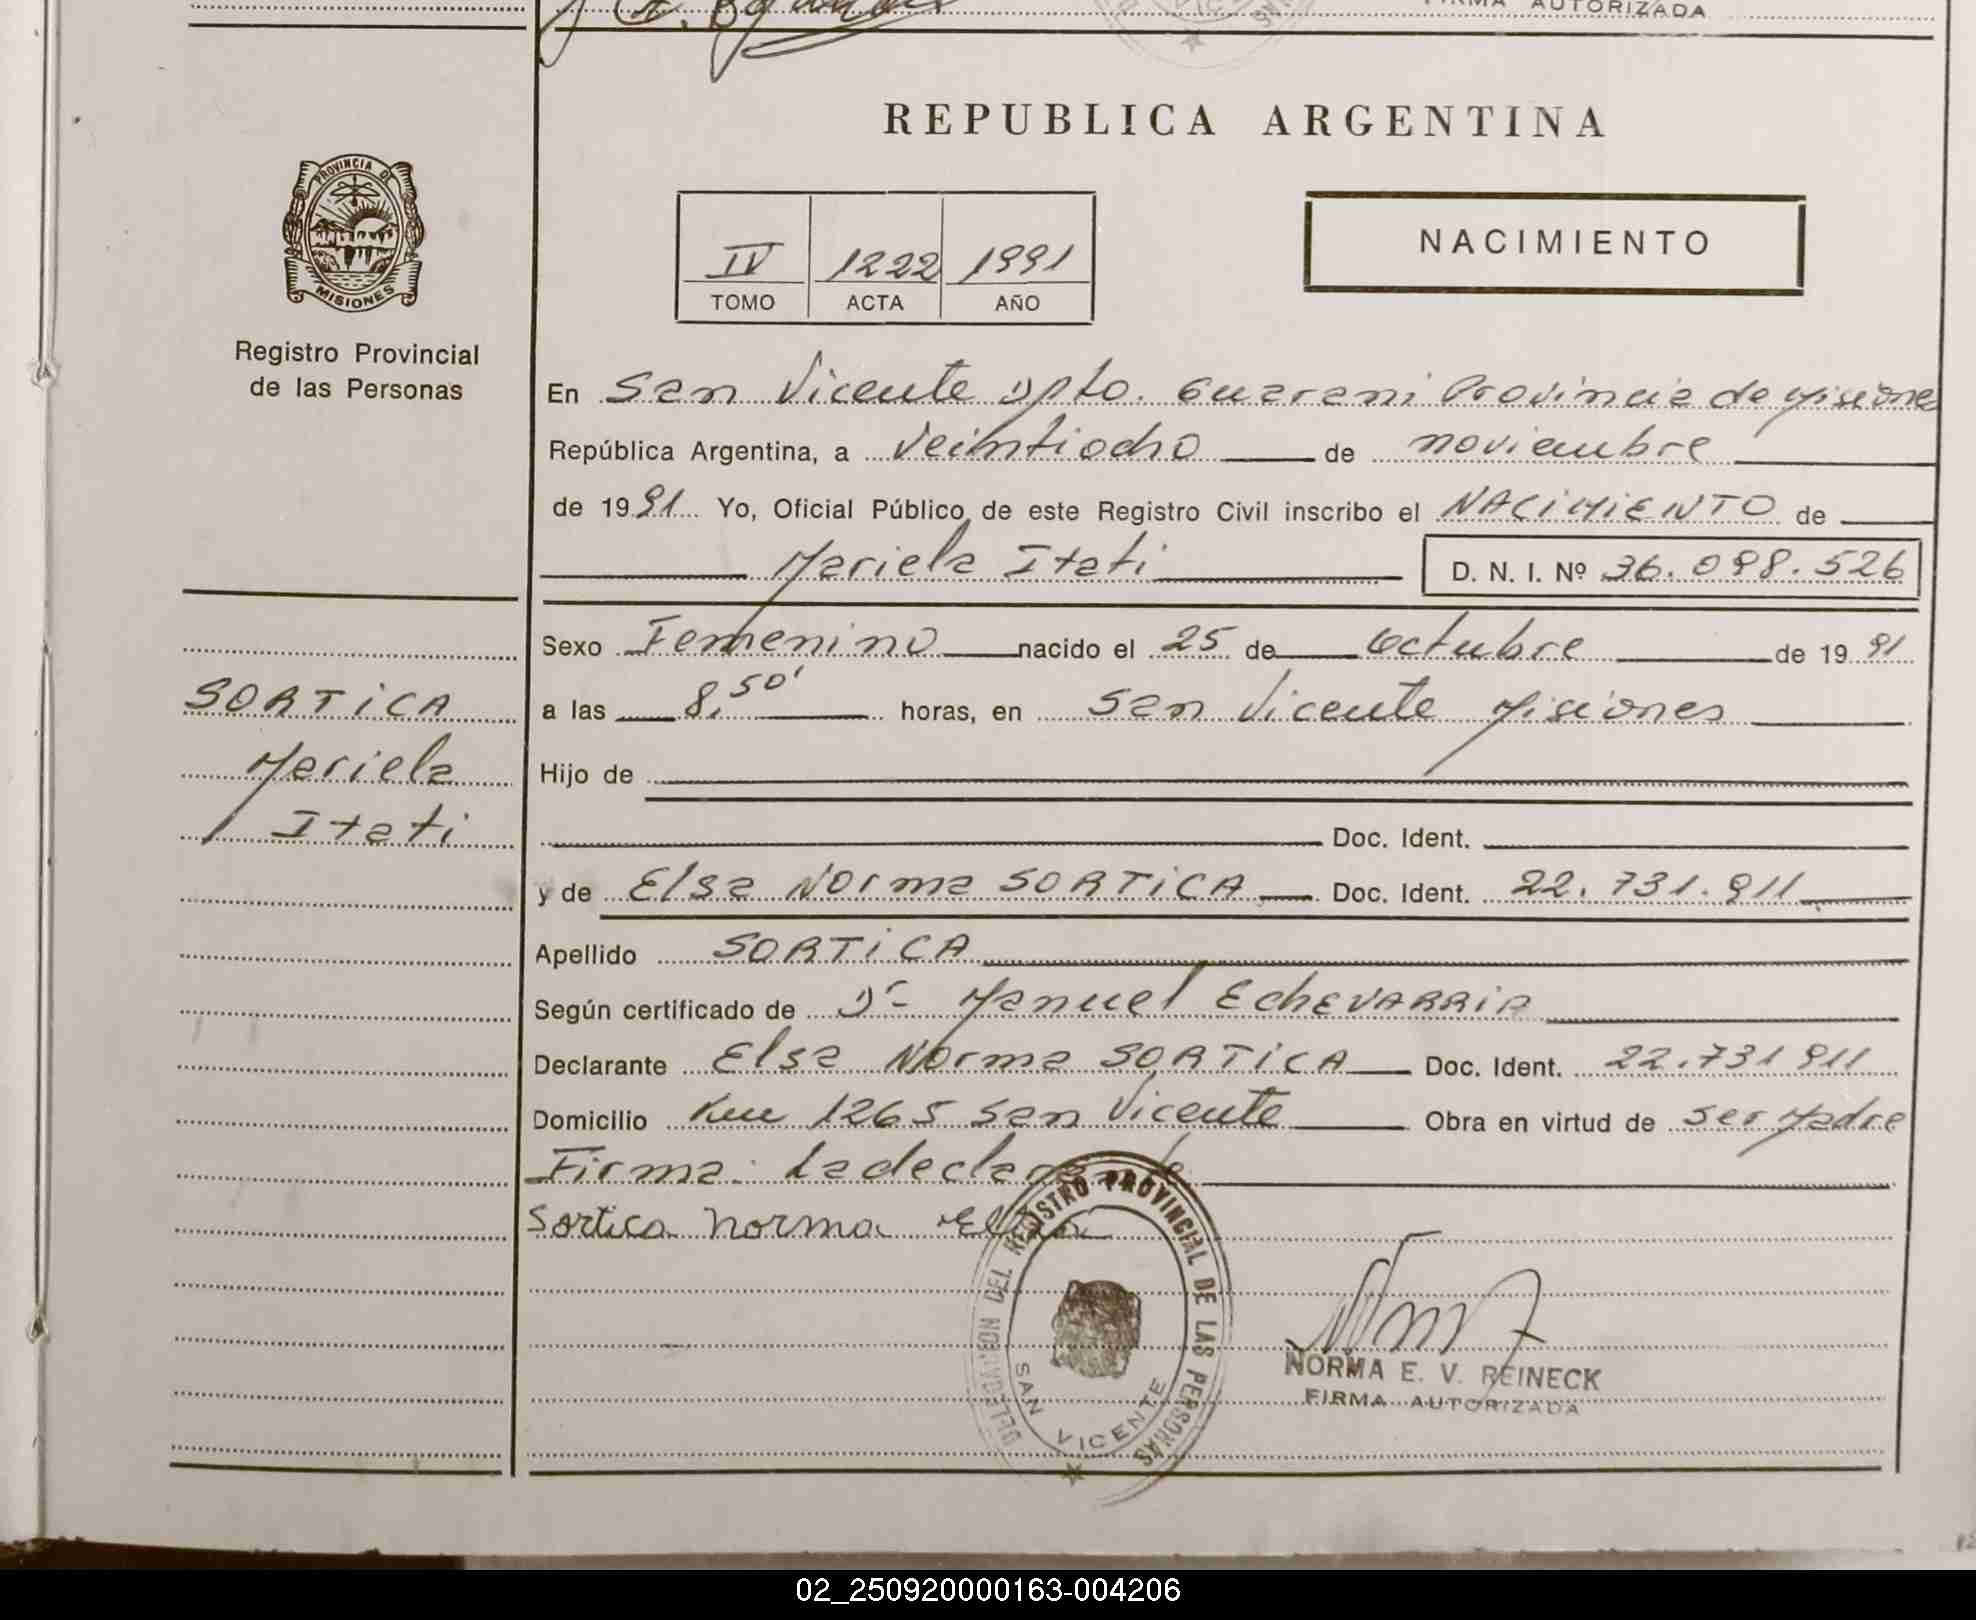 FIRMA AUTORIZADA
REPUBLICA ARGENTINA
PROVINCIA DE
MISIONES
Registro Provincial
de las Personas
IV 1222 1991
TOMO ACTA AÑO
NACIMIENTO
En San Vicente Dpto. Guarani Provincia de Misiones
República Argentina, a Veintiocho de noviembre
de 1991 Yo, Oficial Público de este Registro Civil inscribo el NACIMIENTO de
Mariela Itati D. N. I. Nº 36.098.526
Sexo Femenino nacido el 25 de Octubre de 1991
SORTICA
a las 8,50' horas, en San Vicente Misiones
Mariela
Hijo de
Itati
Doc. Ident.
y de Elsa Norma SORTICA Doc. Ident. 22.731.911
Apellido SORTICA
Según certificado de Dr- Manuel EchEVARRIA
Declarante Elsa Norma SORTICA Doc. Ident. 22.731 911
Domicilio Km 1265 San Vicente Obra en virtud de ser Madre
Firma: La declarante
Sortica Norma Elsa
DELEGACION DEL REGISTRO PROVINCIAL DE LAS PERSONAS
SAN VICENTE
NORMA E. V. REINECK
FIRMA AUTORIZADA
02_250920000163-004206